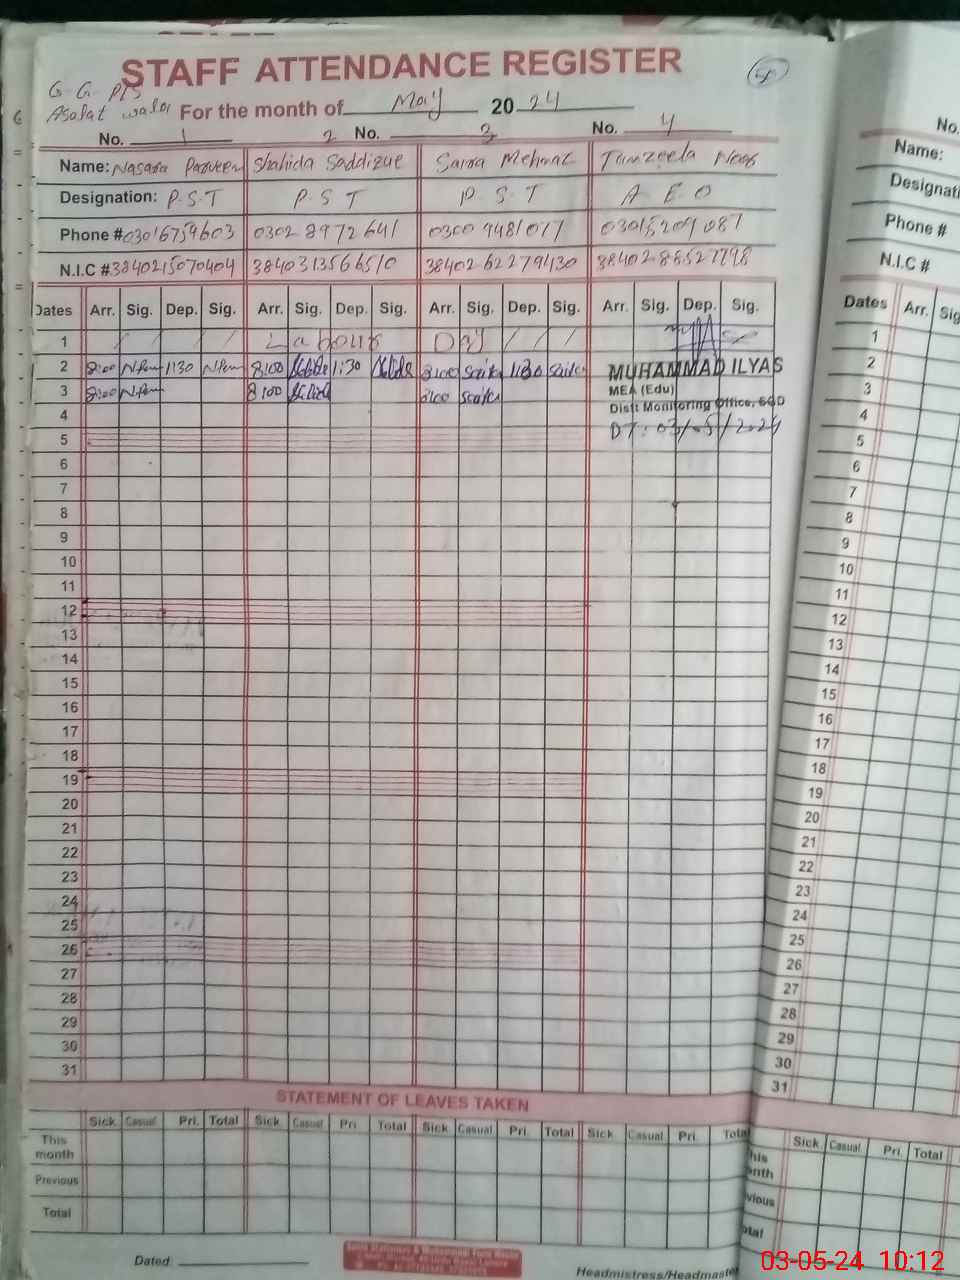 STAFF ATTENDANCE REGISTER
G. G. P/S
Asalat wala For the month of May 20 24
No. 1 2 No. 3 No. 4
Name: Nasara Parveen Shahida Saddique Saira Mehnaz Tanzeela Noor
Designation: P.S.T P.S.T P.S.T A E O
Phone # 03016759603 0302 8972641 0300 9481077 03015209087
N.I.C # 3840215070404 3840313566510 38402 62279430 38402 88527798
Dates Arr. Sig. Dep. Sig. Arr. Sig. Dep. Sig. Arr. Sig. Dep. Sig. Arr. Sig. Dep. Sig.
1 / / / Labour Day / / /
2 8:00 1:30 8:00 1:30 8:00 1:30 MUHAMMAD ILYAS
3 8:00 8:00 8:00 MEA (Edu)
4 Distt Monitoring Office, SGD
5 DT: 03/05/2024
6
7
8
9
10
11
12
13
14
15
16
17
18
19
20
21
22
23
24
25
26
27
28
29
30
31
STATEMENT OF LEAVES TAKEN
Sick Casual Pri. Total Sick Casual Pri. Total Sick Casual Pri. Total Sick Casual Pri. Total
This month
Previous
Total
Dated
Headmistress/Headmaste
No.
Name:
Designati
Phone #
N.I.C #
Dates Arr. Sig
1
2
3
4
5
6
7
8
9
10
11
12
13
14
15
16
17
18
19
20
21
22
23
24
25
26
27
28
29
30
31
Sick Casual Pri. Total
his
onth
vious
otal
03-05-24 10:12